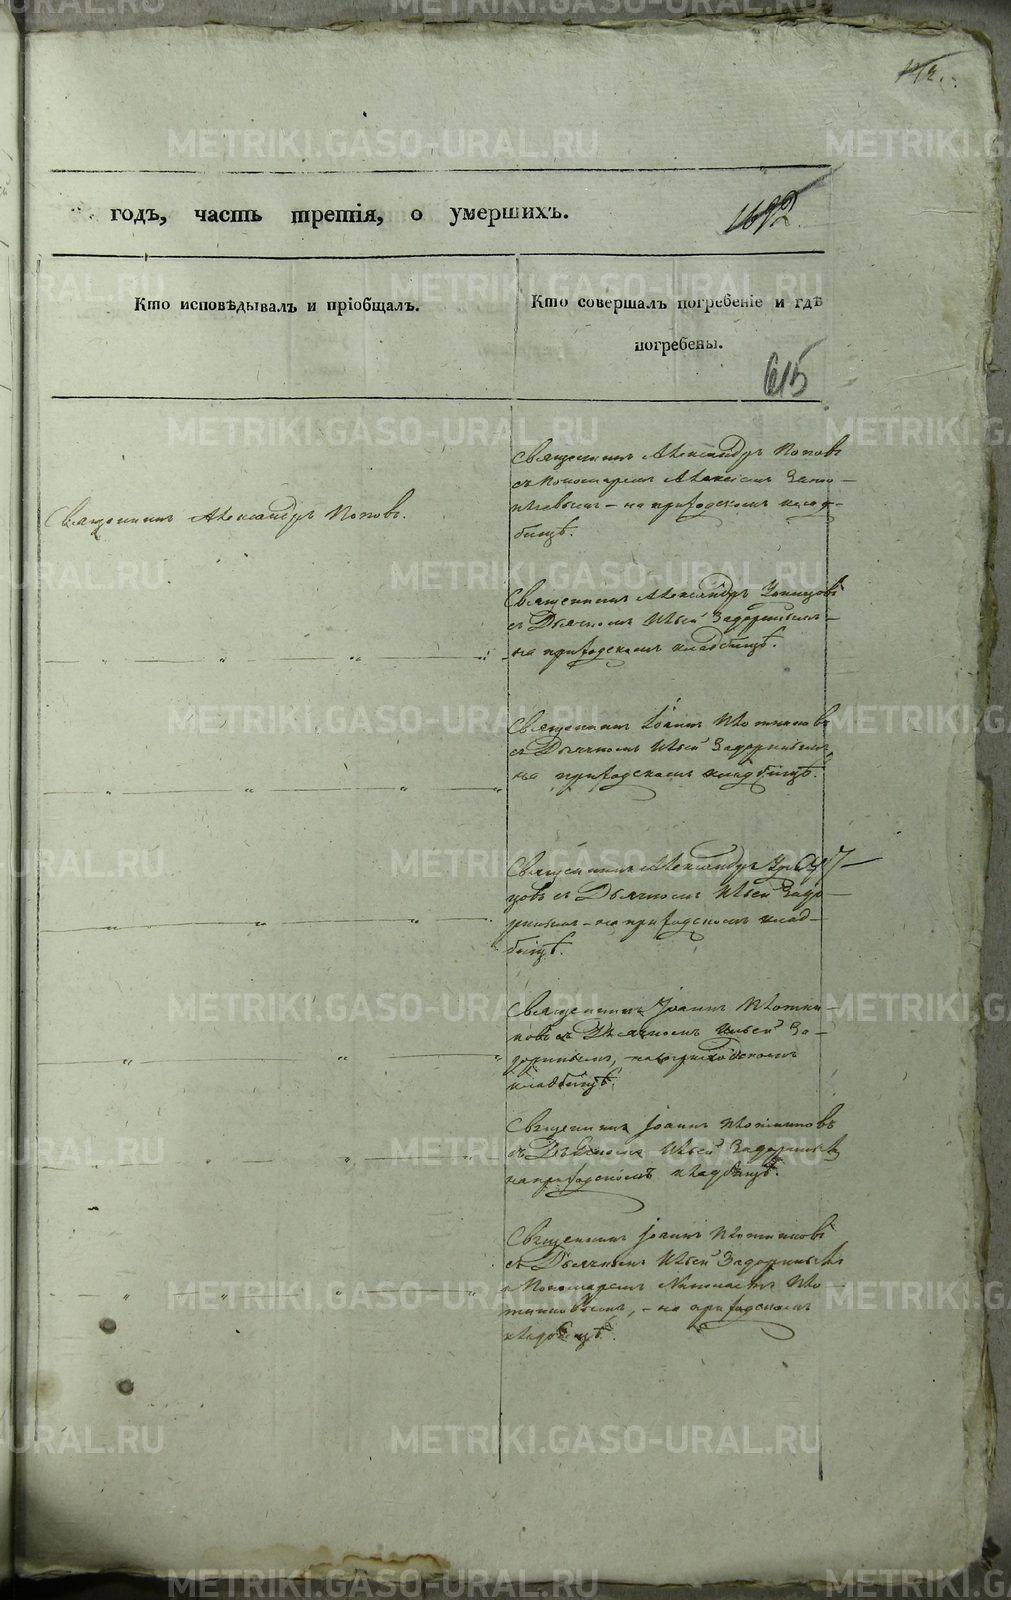 METRIKI.GASO-URAL.RU
годъ, часть третія, о умершихъ.
1692
Кто исповѣдывалъ и пріобщалъ.
Кто совершалъ погребеніе и гдѣ
погребены.
615
Священникъ Александръ Поповъ.
Священникъ Александръ Поповъ
съ Пономаремъ Алексіемъ
на приходскомъ клад-
бищѣ.
Священникъ Александръ
съ Дьячкомъ Ильей Задоринымъ
на приходскомъ кладбищѣ.
Священникъ Іоаннъ Плотниковъ
съ Дьячкомъ Ильей Задоринымъ,
на приходскомъ кладбищѣ.
Священникъ Александръ
съ Дьячкомъ Ильей Задо-
ринымъ – на приходскомъ клад-
бищѣ.
Священникъ Іоаннъ Плотни-
ковъ съ Дьячкомъ Ильей За-
доринымъ, на приходскомъ
кладбищѣ.
Священникъ Іоаннъ Плотниковъ
съ Дьячкомъ Ильей Задоринымъ
на приходскомъ кладбищѣ.
Священникъ Іоаннъ Плотниковъ
съ Дьячкомъ Ильей Задоринымъ
и Пономаремъ Николаемъ Пло-
тниковымъ, – на приходскомъ
кладбищѣ.